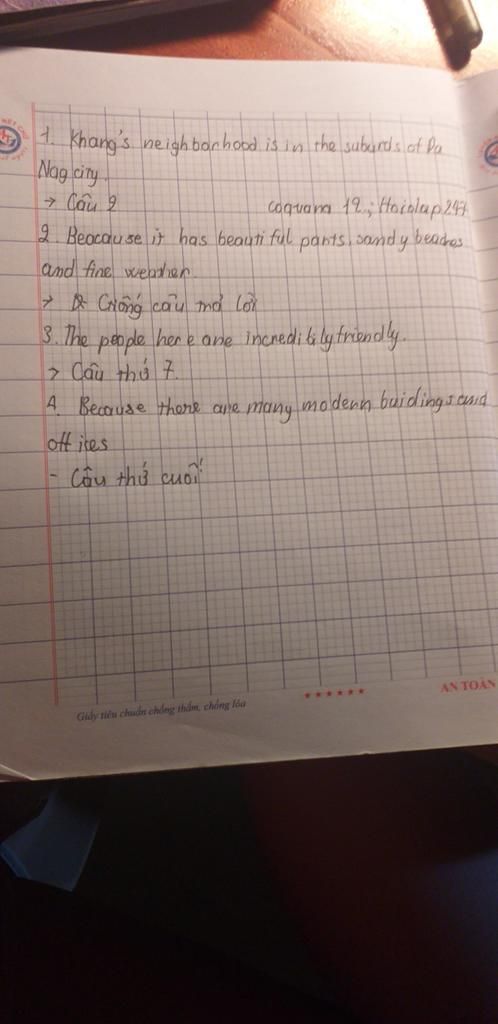 1. Khang's neighborhood is in the suburds of Da
Nag city.
→ Câu 2
coquana 12; Hoidap247
2. Beocause it has beautiful pants, sandy beaches
and fine weather.
→ Giống câu trả lời
3. The people here are incredibly friendly.
> Câu thứ 7.
4. Because there are many modern buidings and
offices
- Câu thứ cuối
Giấy tiêu chuẩn chống thấm, chống lóa
★★★★★★
AN TOÀN